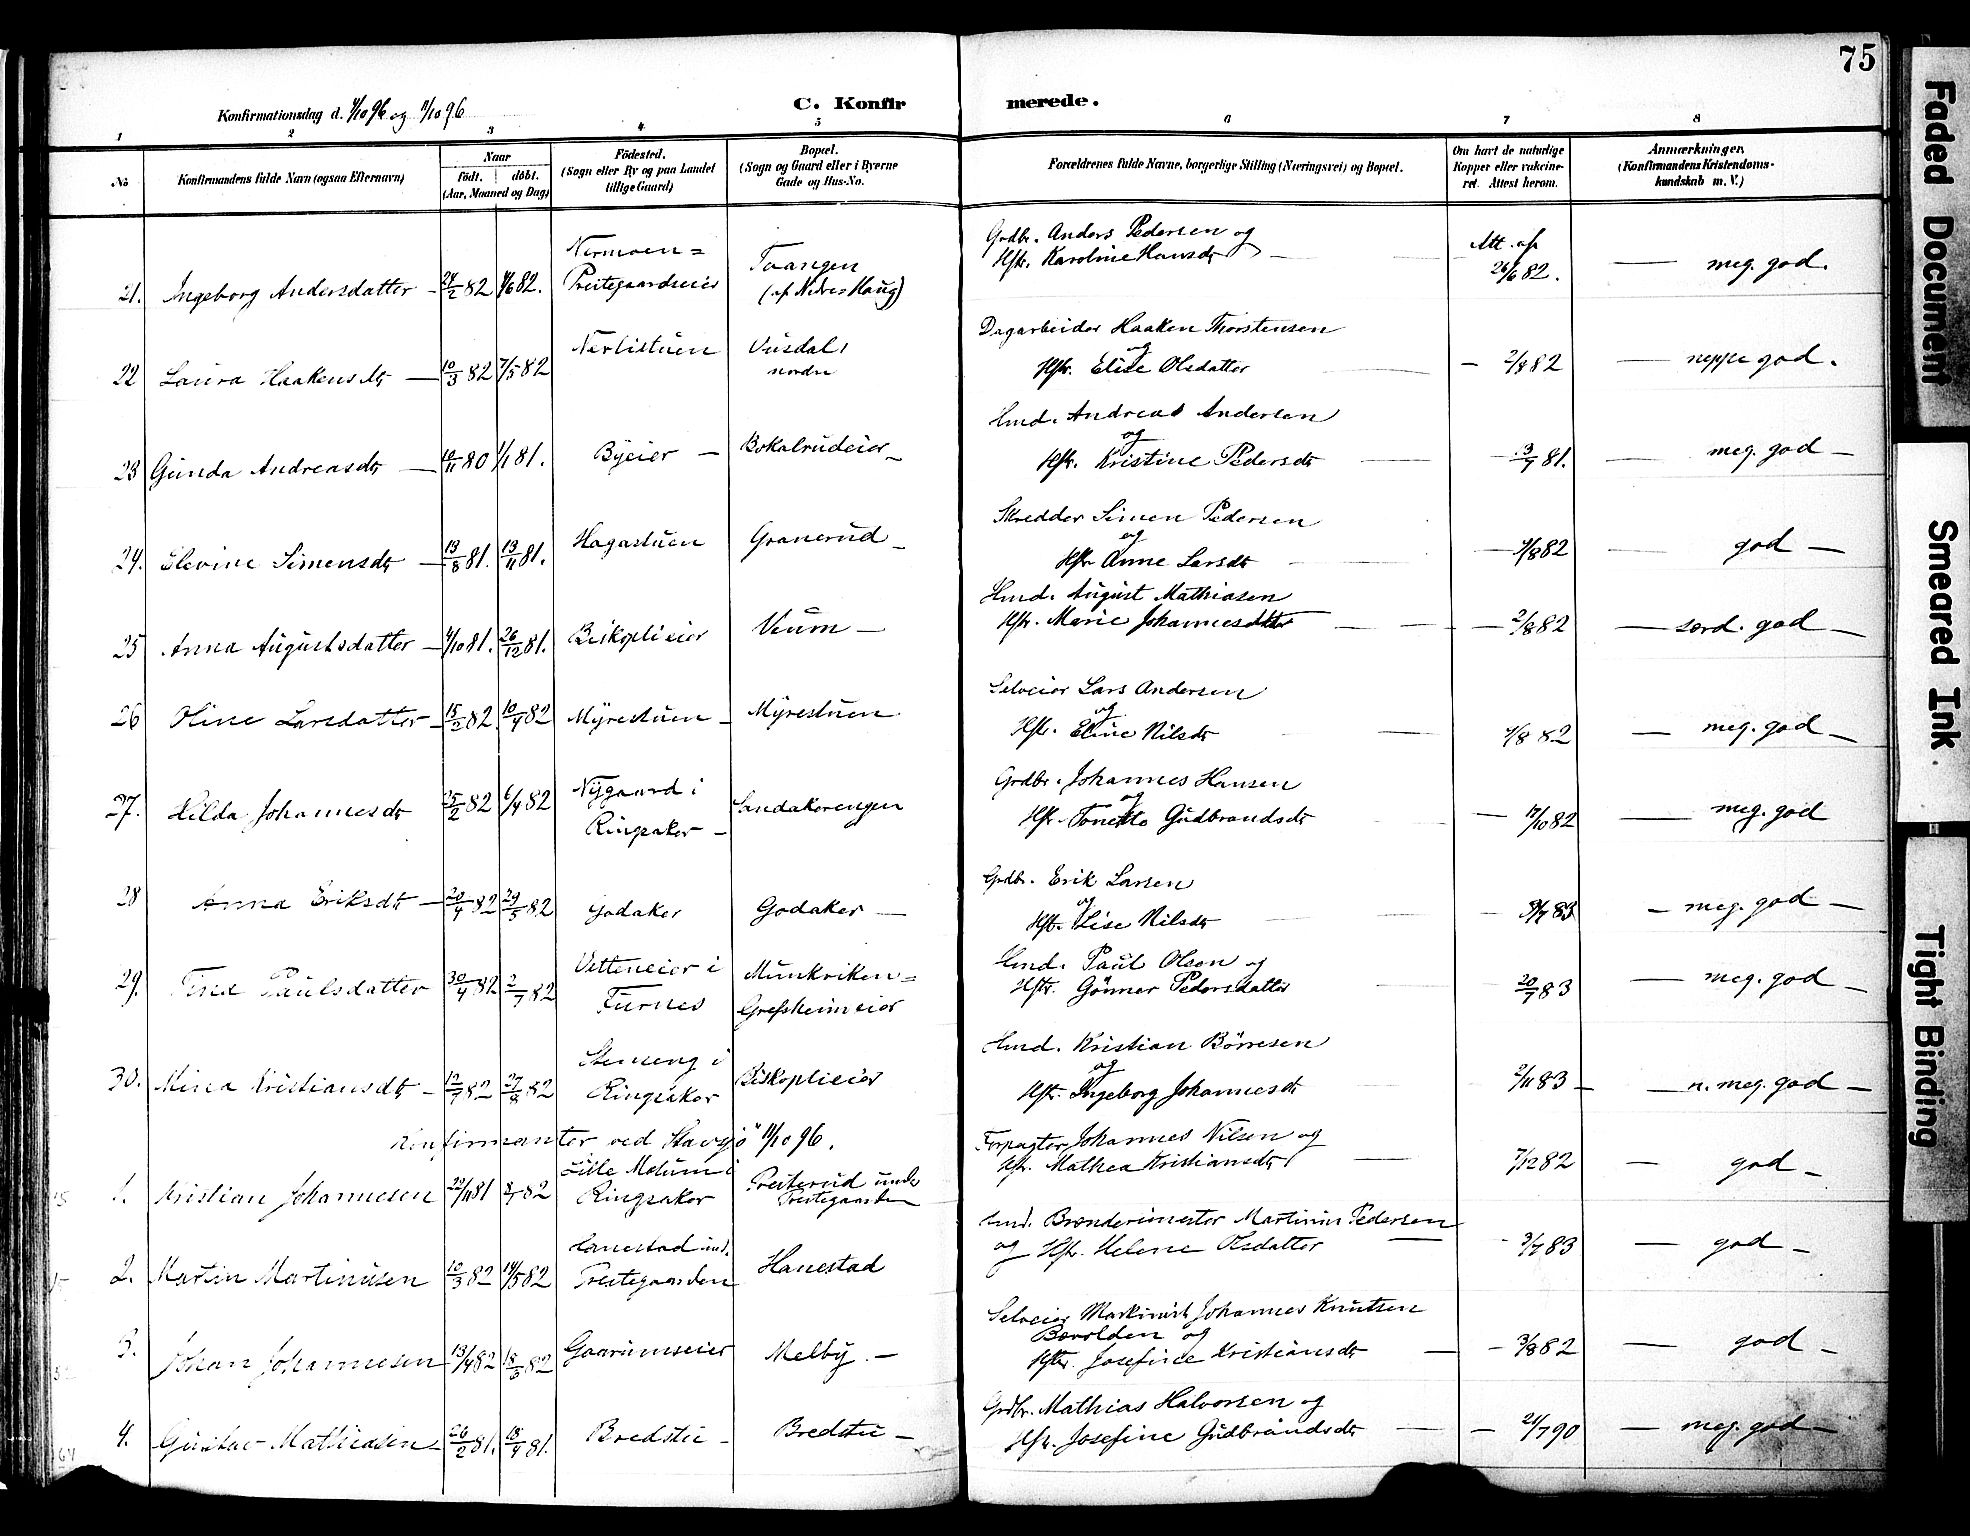 75
Konfirmationsdag d. 4/10 96 og 11/10 96
C. Konfirmerede.
1 2 3 4 5 6 7 8
No
Konfirmandens fulde Navn (ogsaa Efternavn)
Naar
födt. döbt.
(Aar, Maaned og Dag)
Födested.
(Sogn eller By og paa Landet
tillige Gaard)
Bopæl.
(Sogn og Gaard eller i Byerne
Gade og Hus-No.
Forældrenes fulde Navne, borgerlige Stilling (Næringsvei) og Bopæl.
Om havt de naturlige
Kopper eller vakcine-
ret. Attest herom.
Anmærkninger.
(Konfirmandens Kristendoms-
kundskab m. V.)
21. Ingeborg Andersdatter - 24/2 82 4/6 82. Nermoen= Prestegaardseier Taangen (af Nedre Haug) Grdbr. Anders Pedersen og Hstr. Karoline Hansdtr - Att. af 26/6 82. - meg. god.
22 Laura Haakensdtr - 10/3 82 7/5 82 Nerlistuen Vusdal nordre Dagarbeider Haaken Thorstensen og Hstr. Elise Olsdatter - 2/8 82 - neppe god.
23 Gunda Andreasdtr - 10/11 80 1/1 81. Byeier - Bokalrudeier - Hmd. Andreas Andersen og Hstr. Kristine Pedersdtr - 3/7 81. - meg. god -
24. Elevine Simensdtr - 13/8 81. 13/11 81. Hagastuen Granerud - Skredder Simen Pedersen og Hstr Anne Larsdtr - 4/8 82 - god -
25 Anna Augustsdatter - 4/10 81. 26/12 81. Biskoplieier Veum - Hmd. August Mathiasen Hstr. Marie Johannesdatter - 2/8 82 - særd. god -
26 Oline Larsdatter - 15/2 82 10/4 82 Myrestuen - Myrestuen Selveier Lars Andersen og Hstr. Eline Nilsdtr - 4/8 82 - meg. god -
27. Hilda Johannesdtr 25/2 82 6/4 82 Nygaard i Ringsaker - Sandakerengen Grdbr. Johannes Hansen og Hstr. Tonette Gudbrandsdtr - 17/10 82 - meg. god
28 Anna Eriksdtr - 20/4 82 29/5 82 Godaker Godaker - Grdbr. Erik Larsen og Hstr. Lise Nilsdtr - 83 - meg. god -
29. Tina Paulsdatter 30/4 82 2/7 82 Vetteneier i Furnes Munkriken= Grefsheimeier Hmd. Paul Olsen og Hstr. Gönner Pedersdatter - 20/7 83 - meg. god -
30. Mina Kristiansdtr - 12/7 82 27/8 82 Steneng i Ringsaker Biskoplieier Hmd. Kristian Börresen og Hstr. Ingeborg Johannesdtr 2/11 83 - n. meg. god -
Konfirmanter ved Stavsjö 11/10 96.
1. Kristian Johannesen 22/11 81 8/1 82 Lille Molum i Ringsaker Presterud under Prestegaarden Forpagter Johannes Nilsen og Hstr. Mathea Kristiansdtr - 7/12 82 - god -
2. Martin Martinusen 10/3 82 14/5 82 Hanestad und. Prestegaarden Hanestad Hmd. Brænderimester Martinus Pedersen og Hstr. Helene Olsdatter - 3/7 83 - god -
3. Johan Johannesen 13/4 82 18/5 82 Gaarumseier Melby. - Selveier Maskinist Johannes Knutsen Bævolden og Hstr. Josefine Kristiansdtr - 3/8 82 - god -
4. Gustav Mathiasen 26/2 81. 18/4 81. Bredstu - Bredstu - Grdbr. Mathias Halvorsen og Hstr. Josefine Gudbrandsdtr - 21/7 90 - meg. god -
Faded Document
Smeared Ink
Tight Binding